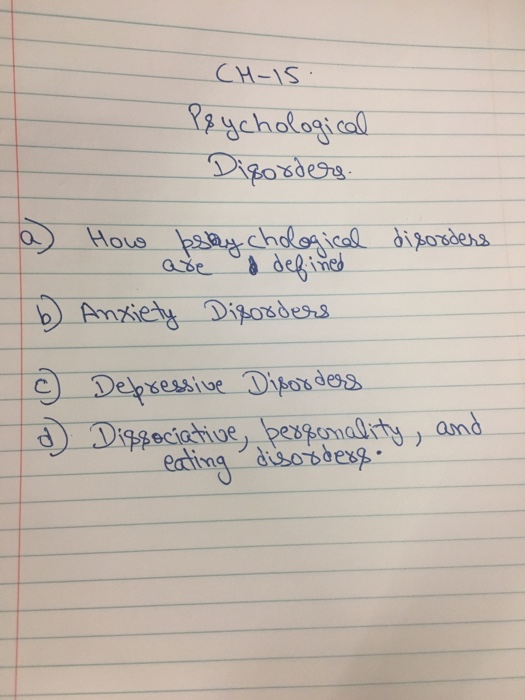 CH-15.
Psychological
Disorders.
a) How psychological disorders
are defined
b) Anxiety Disorders
c) Depressive Disorders
d) Dissociative, personality, and
eating disorders.